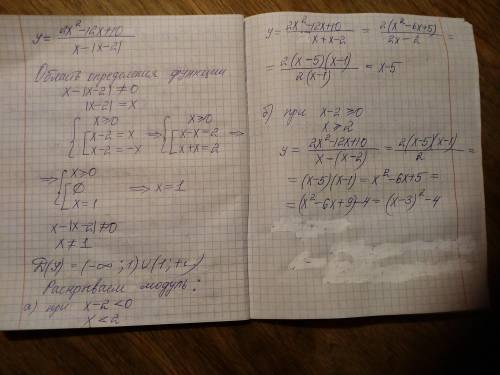 y = 2x²-12x+10 / x-|x-2|
Область определения функции
x-|x-2| ≠ 0
|x-2| = x
{ x ≥ 0 [ x-2 = x [ x-2 = -x ⇒ { x ≥ 0 [ x-x = 2 [ x+x = 2 ⇒
⇒ { x ≥ 0 [ ∅ [ x = 1 ⇒ x = 1
x-|x-2| ≠ 0
x ≠ 1
D(y) = (-∞; 1) ∪ (1; +∞)
Раскрываем модуль:
а) при x-2 < 0
x < 2
y = 2x²-12x+10 / x+x-2 = 2(x²-6x+5) / 2x-2 =
= 2(x-5)(x-1) / 2(x-1) = x-5
б) при x-2 ≥ 0
x ≥ 2
y = 2x²-12x+10 / x-(x-2) = 2(x-5)(x-1) / 2 =
= (x-5)(x-1) = x²-6x+5 =
= (x²-6x+9)-4 = (x-3)²-4